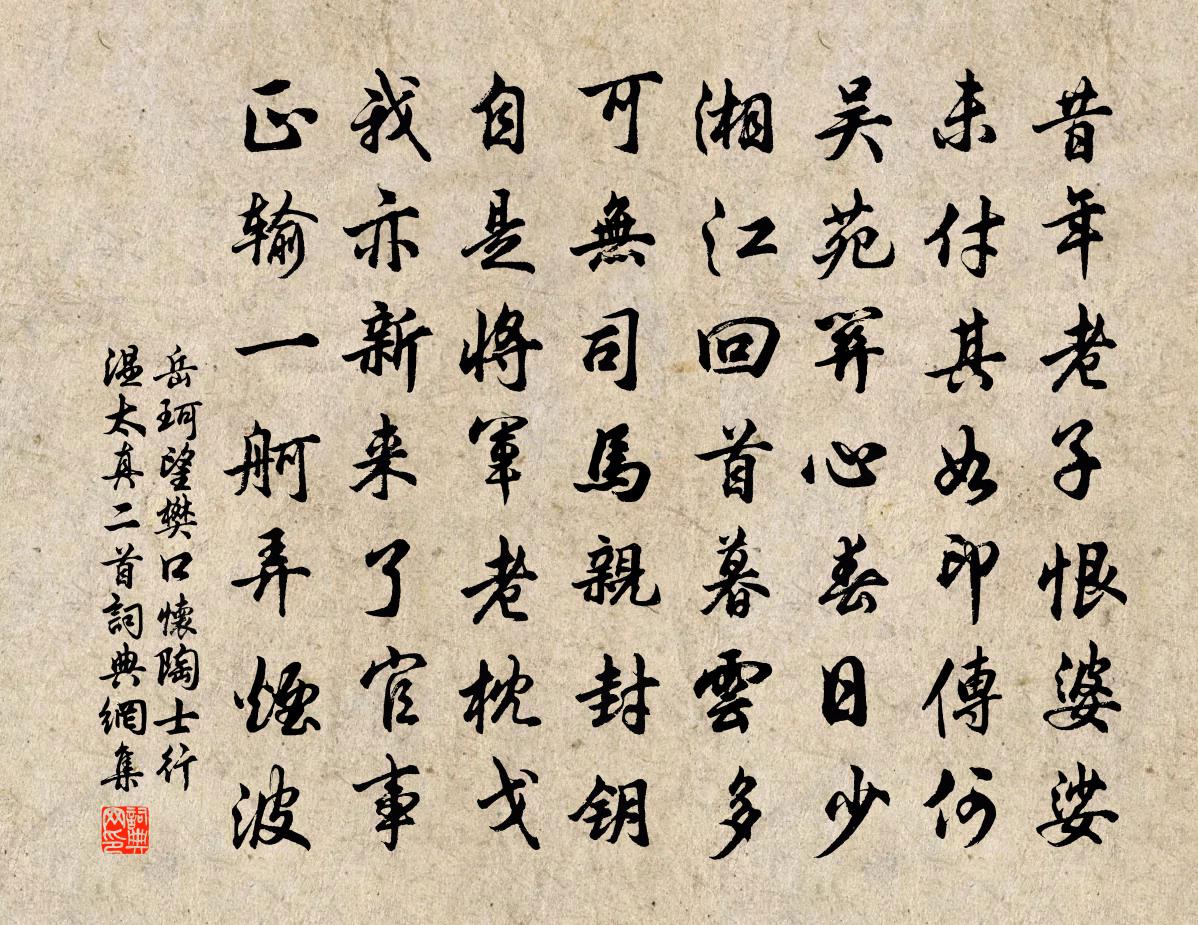 昔年老子恨婆娑
未付其如印傳何
吳苑笄心春日少
湘江回首暮雲多
可無司馬親封钥
自是將軍老枕戈
我亦新来了官事
正输一舸弄煙波
岳珂望樊口懷陶士行
温太真二首詞典網集
詞典网印